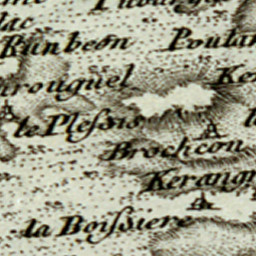 lac
Runbeon
Poular
urouguel
Ke
le Pleſsis
Brochcon
Kerang
la Boiſsiere